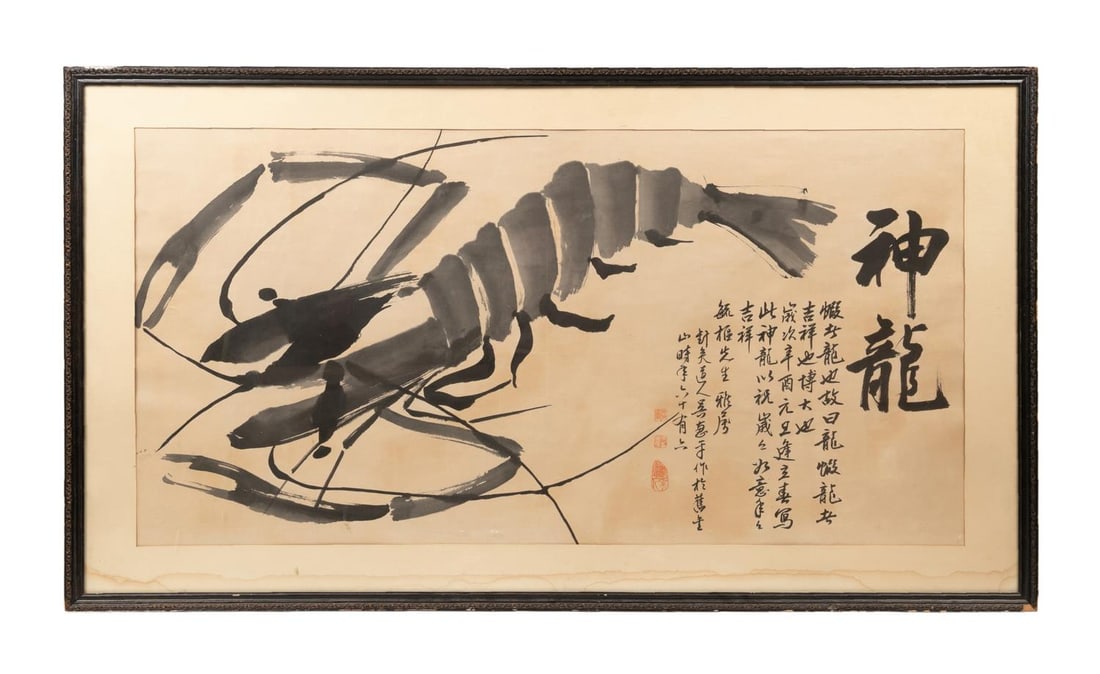 神龍
蝦者龍也故曰龍蝦龍者
吉祥也博大也
歲次辛酉元旦逢立春寫
此神龍以祝歲々如意年々
吉祥
毓樞先生雅屬
道人吳惠平作於舊金
山時年六十有六